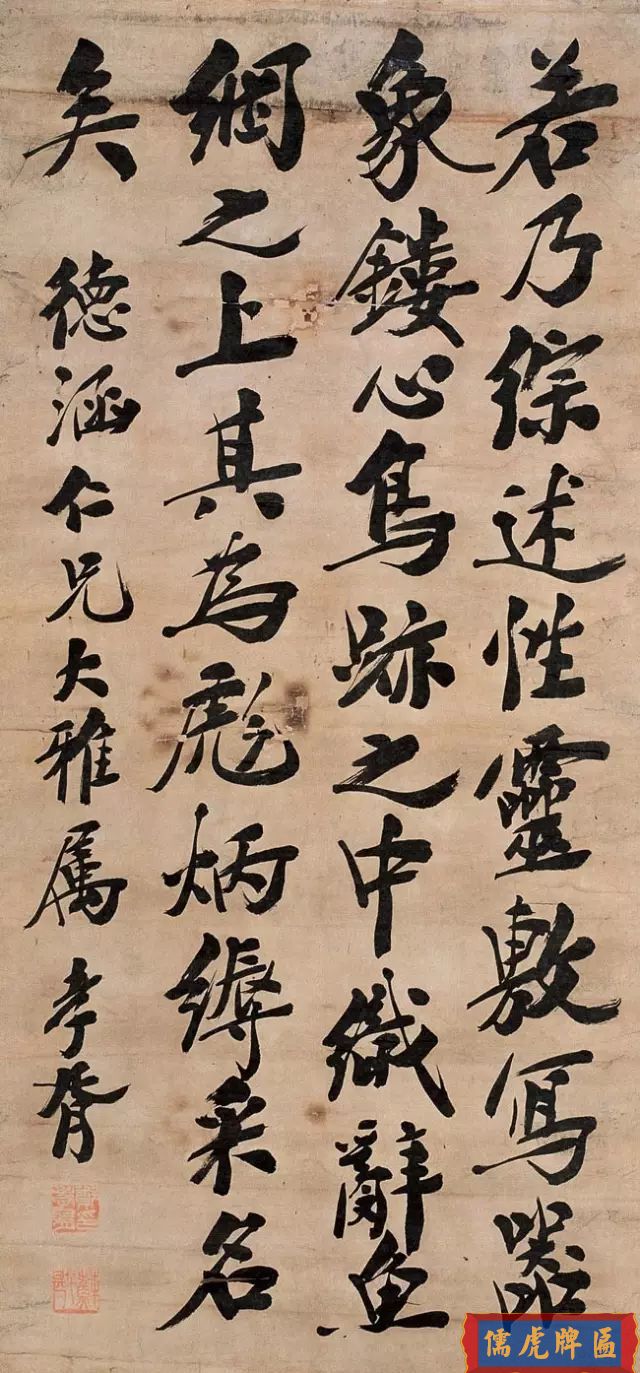 若乃綜述性靈敷寫器
象鏤心鳥跡之中織辭魚
網之上其為彪炳縟采名
矣
德涵仁兄大雅属 孝胥
儒虎牌匾